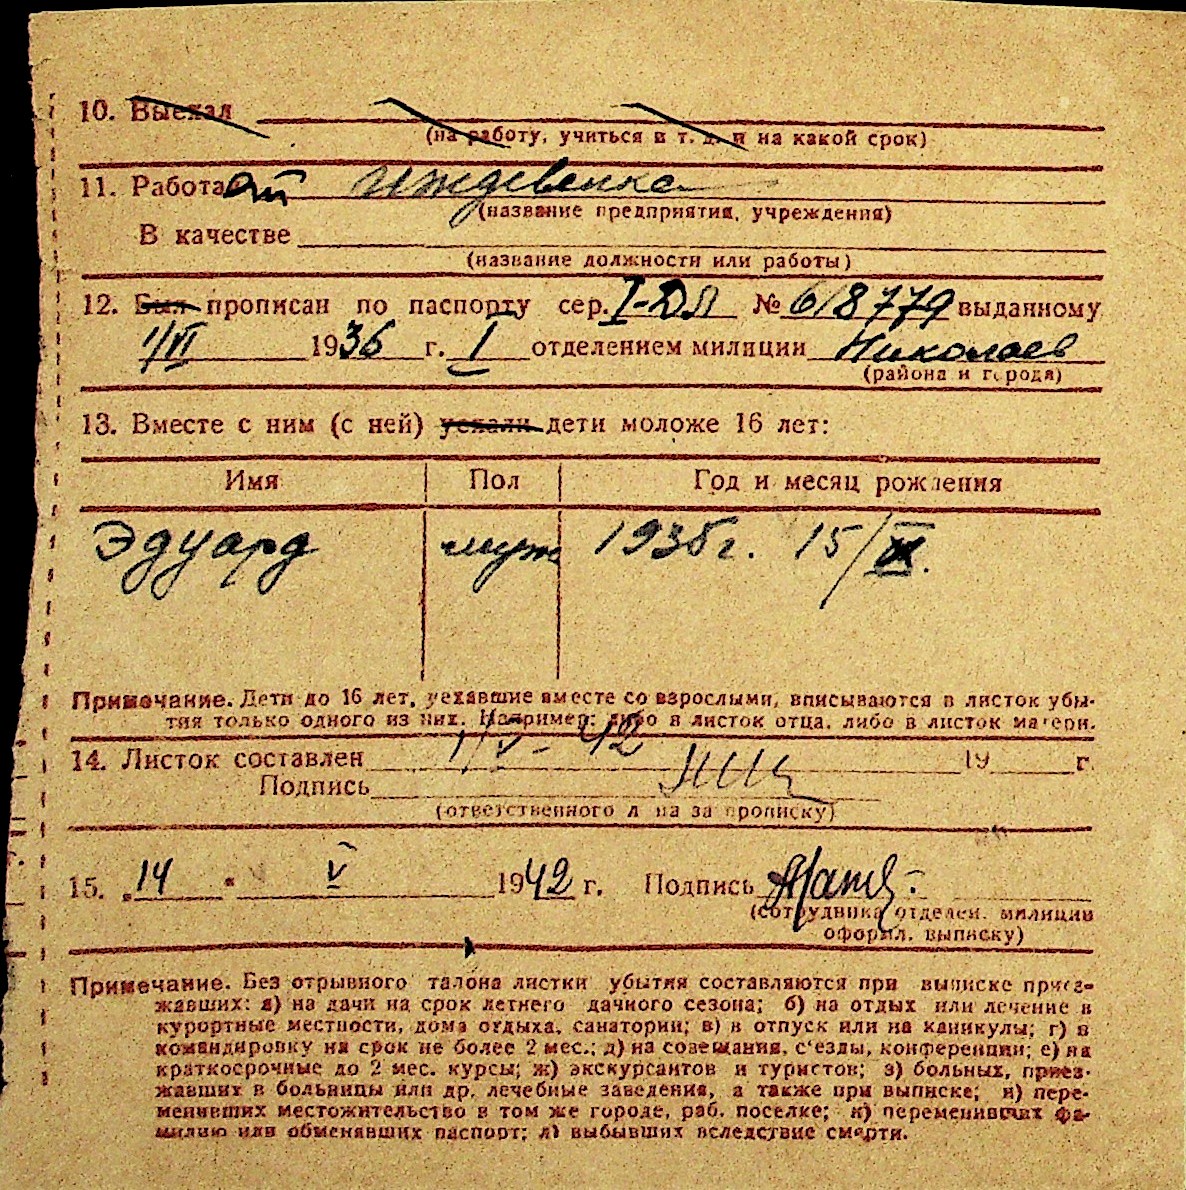 10. Выехал
(на работу, учиться и т. д. и на какой срок)
11. Работает иждивенка
(название предприятия, учреждения)
В качестве
(название должности или работы)
12. Был прописан по паспорту сер. I-ДЛ № 618779 выданному
1/VI 1936 г. I отделением милиции Николаев
(района и города)
13. Вместе с ним (с ней) уехали дети моложе 16 лет:
Имя Пол Год и месяц рождения
Эдуард муж 1935 г. 15/
Примечание. Дети до 16 лет, уехавшие вместе со взрослыми, вписываются в листок убы-
тия только одного из них. Например: либо в листок отца, либо в листок матери.
14. Листок составлен V-42 19 г.
Подпись
(ответственного л на за прописку)
15. „14 " V 1942 г. Подпись
(сотрудника отделен. милиции
оформ. выписку)
Примечание. Без отрывного талона листки убытия составляются при выписке приез-
жавших: а) на дачи на срок летнего дачного сезона; б) на отдых или лечение в
курортные местности, дома отдыха, санатории; в) в отпуск или на каникулы; г) в
командировку на срок не более 2 мес.; д) на совещания, с'езды, конференции; е) на
краткосрочные до 2 мес. курсы; ж) экскурсантов и туристов; з) больных, приез-
жавших в больницы или др. лечебные заведения, а также при выписке; и) пере-
менивших местожительство в том же городе, раб. поселке; к) переменивших фа-
милию или обменявших паспорт; л) выбывших вследствие смерти.